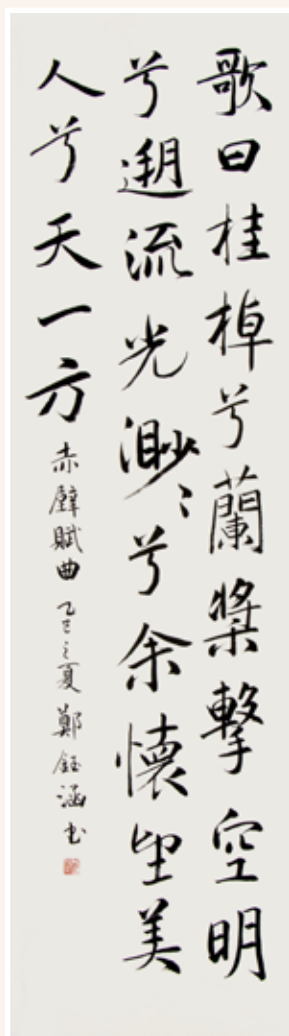 歌曰桂棹兮蘭槳擊空明
兮遡流光渺〻兮余懷望美
人兮天一方
赤壁賦曲 乙巳之夏 鄭鈺涵書